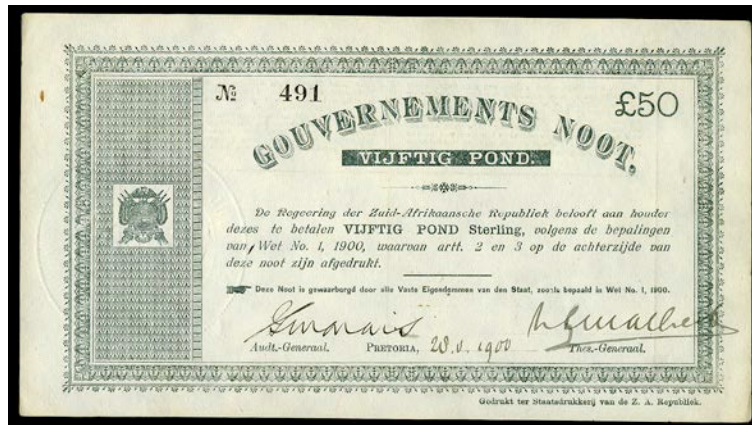 № 491
£50
GOUVERNEMENTS NOOT.
VIJFTIG POND.
De Regeering der Zuid-Afrikaansche Republiek belooft aan houder
dezes te betalen VIJFTIG POND Sterling, volgens de bepalingen
van Wet No. 1, 1900, waarvan artt. 2 en 3 op de achterzijde van
deze noot zijn afgedrukt.
Deze Noot is gewaarborgd door alle Vaste Eigendommen van den Staat, zooals bepaald in Wet No. 1, 1900.
Audt.-Generaal. PRETORIA, 28.v.1900 Thes.-Generaal.
Gedrukt ter Staatsdrukkerij van de Z. A. Republiek.